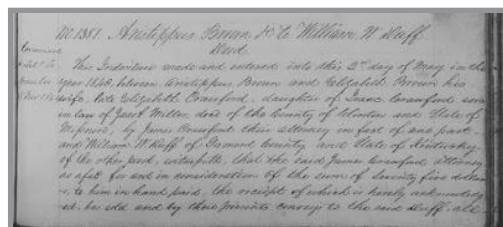 No. 1351. Aristippus Brown &c to William W. Duff
Deed
This Indenture made and entered into this 2nd day of May in the
year 1840, between Aristippus Brown and Elizabeth Brown his
wife, late Elizabeth Crawford, daughter of Isaac Crawford
in law of Jacob Miller, decd of the County of Clinton and State of
Missouri, by James Crawford their attorney in fact of one part
and William W. Duff of County and State of Kentucky
of the other part, witnesseth, that the said James Crawford attorney
as afsd for and in consideration of the sum of seventy five dollars
to him in hand paid, the receipt of which is hereby acknowledg
ed, has sold and by these presents conveys to the said Duff, all